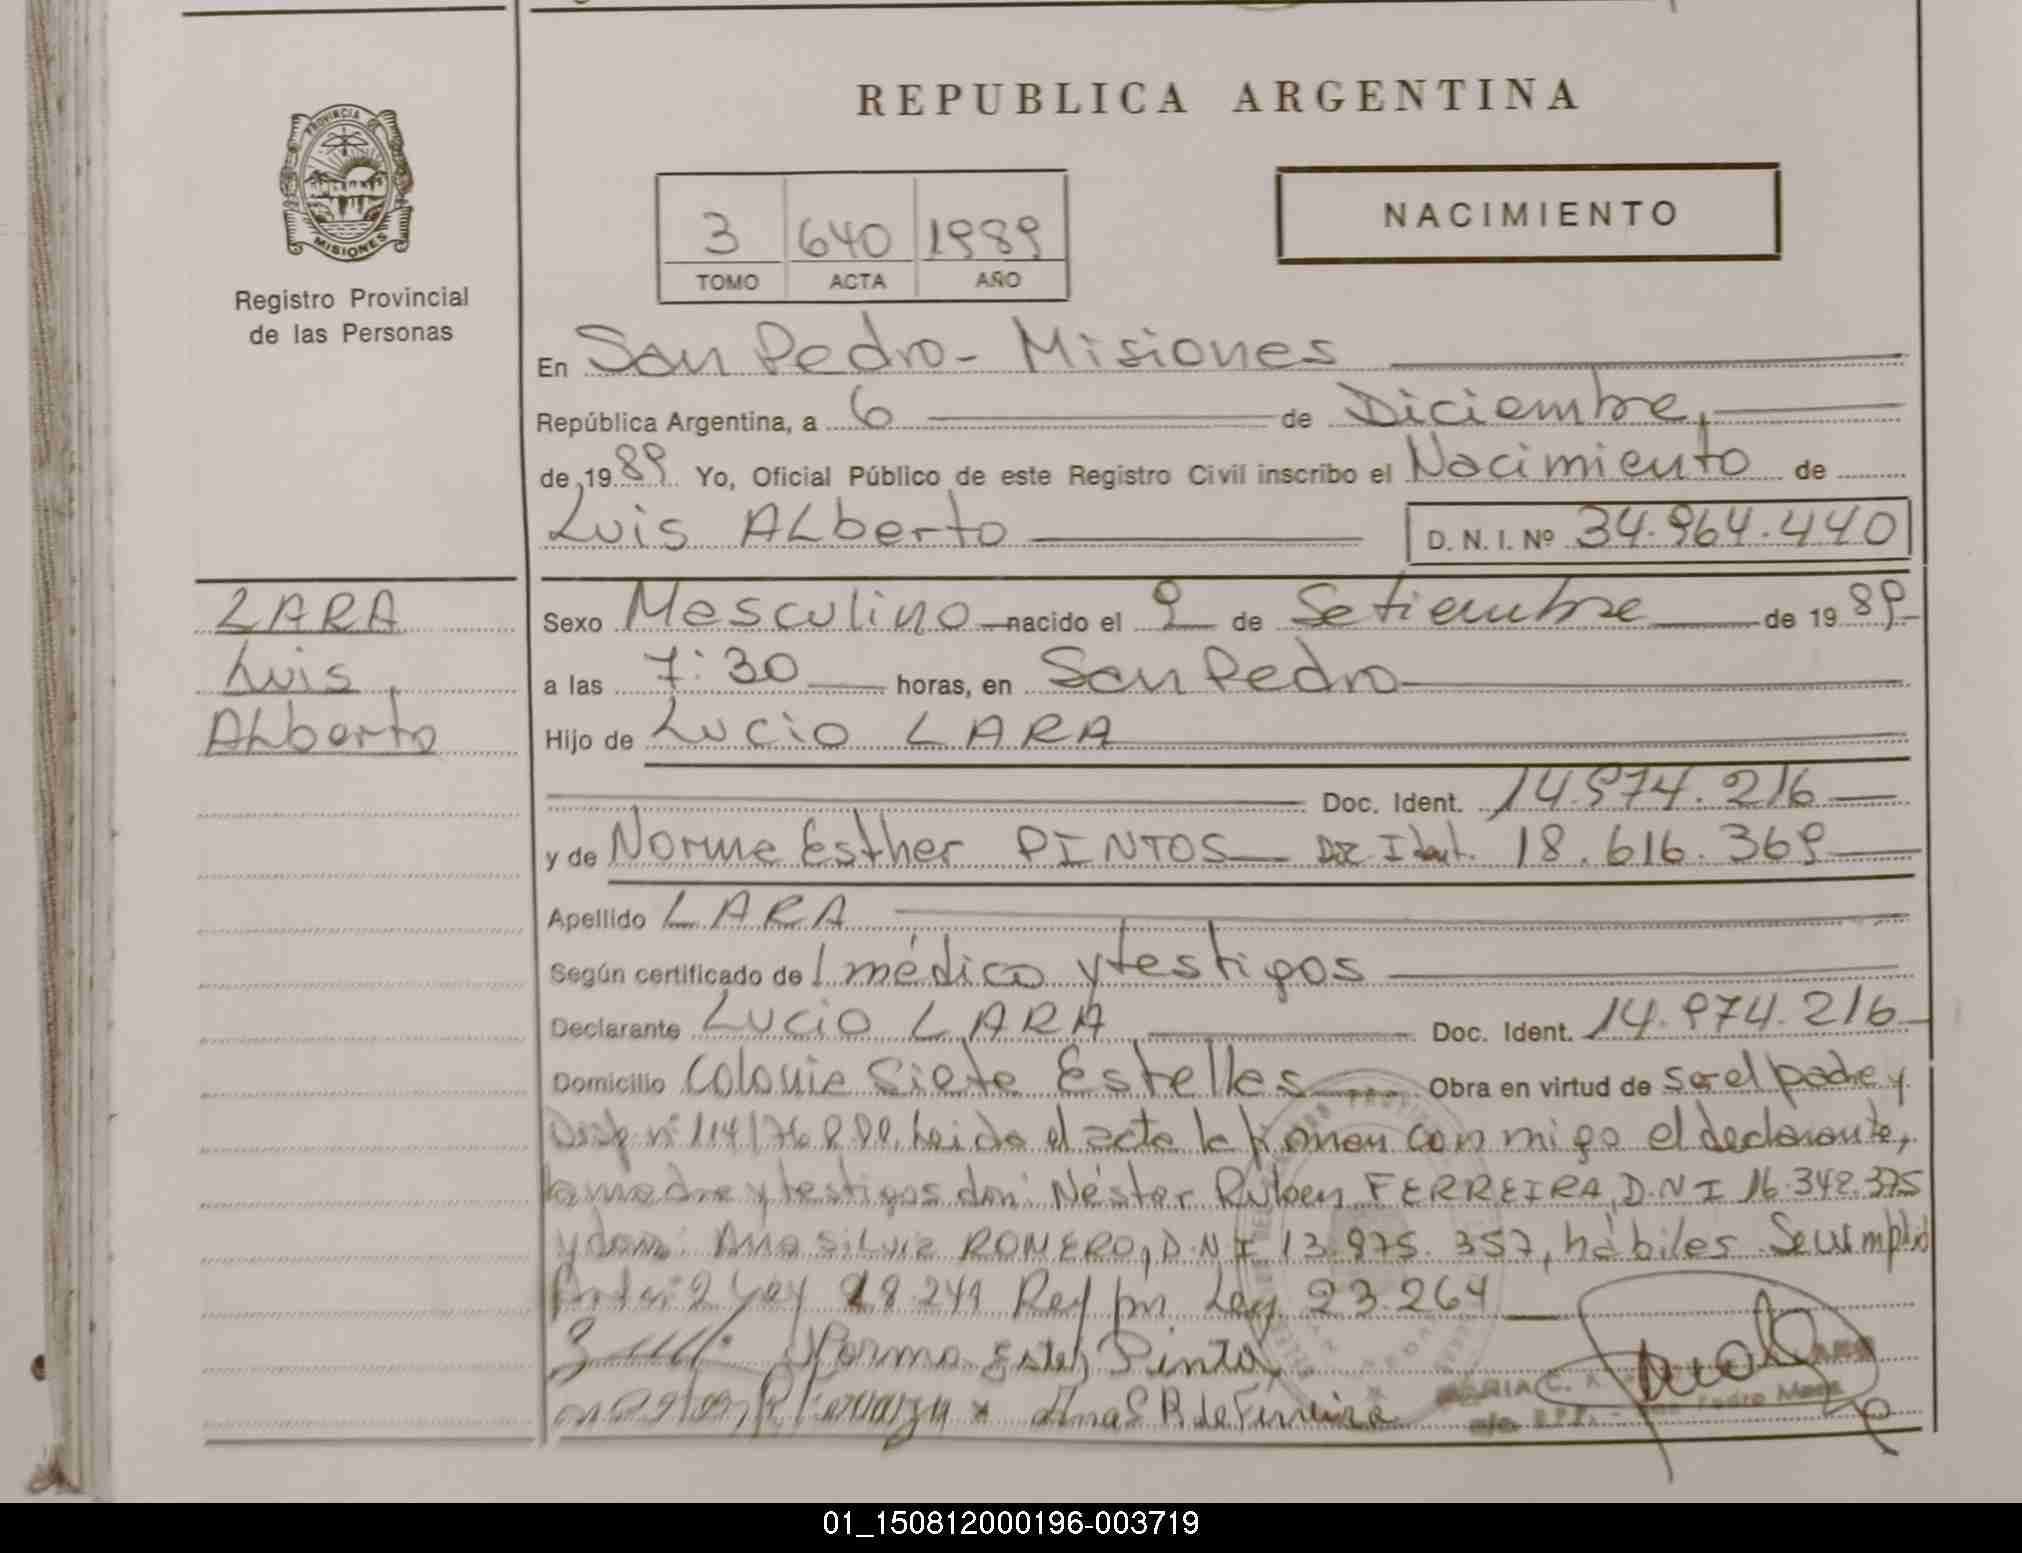 REPUBLICA ARGENTINA
PROVINCIA DE
MISIONES
Registro Provincial
de las Personas
3 640 1989
TOMO ACTA AÑO
NACIMIENTO
En San Pedro - Misiones
República Argentina, a 6 de Diciembre,
de 1989 Yo, Oficial Público de este Registro Civil inscribo el Nacimiento de
Luis ALberto D. N. I. Nº 34.964.440
LARA
Luis,
ALberto
Sexo Masculino nacido el 9 de Setiembre de 1989
a las 7:30 horas, en San Pedro
Hijo de Lucio LARA
Doc. Ident. 14.974.216
y de Norma Esther PINTOS Doc Ident. 18.616.369
Apellido LARA
Según certificado de 1 médico y testigos
Declarante Lucio LARA Doc. Ident. 14.974.216
Domicilio Colonia Siete Estrellas Obra en virtud de ser el padre y
Disp nº 114/76 R.P.P. Leida el acta la firman con migo el declarante,
la madre y testigos don: Néster Ruben FERREIRA, D.N I 16.342.375
y doña: Ana SiLvia ROMERO, D.N I 13.975.357, hábiles. Se cumplió
Art nº 2 Ley 18.248 Ref por Ley 23.264
Norma Ester Pinto
Ana S R de Ferreira
MARIA C.
San Pedro Mnes
01_150812000196-003719